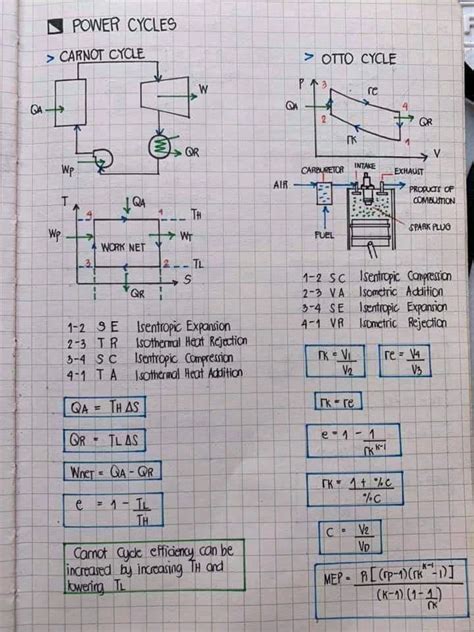 POWER CYCLES
> CARNOT CYCLE
QA
W
QR
Wp
T
QA
4
1
TH
Wp
WORK NET
WT
3
2
TL
QR
S
1-2 S E Isentropic Expansion
2-3 T R Isothermal Heat Rejection
3-4 S C Isentropic Compression
4-1 T A Isothermal Heat Addition
QA = TH ΔS
QR = TL ΔS
WNET = QA - QR
e = 1 - TL/TH
Carnot Cycle efficiency can be
increased by increasing TH and
lowering TL
> OTTO CYCLE
P
3
re
4
QA
QR
2
rk
1
V
CARBURETOR
INTAKE
EXHAUST
AIR
PRODUCT OF
COMBUSTION
SPARK PLUG
FUEL
1-2 S C Isentropic Compression
2-3 V A Isometric Addition
3-4 S E Isentropic Expansion
4-1 V R Isometric Rejection
rk = V1/V2
re = V4/V3
rk = re
e = 1 - 1/rk^k-1
rk = 1 + %C / %C
C = V2/VD
MEP = P1[(rp-1)(rk^k-1 -1)] / (k-1)(1 - 1/rk)